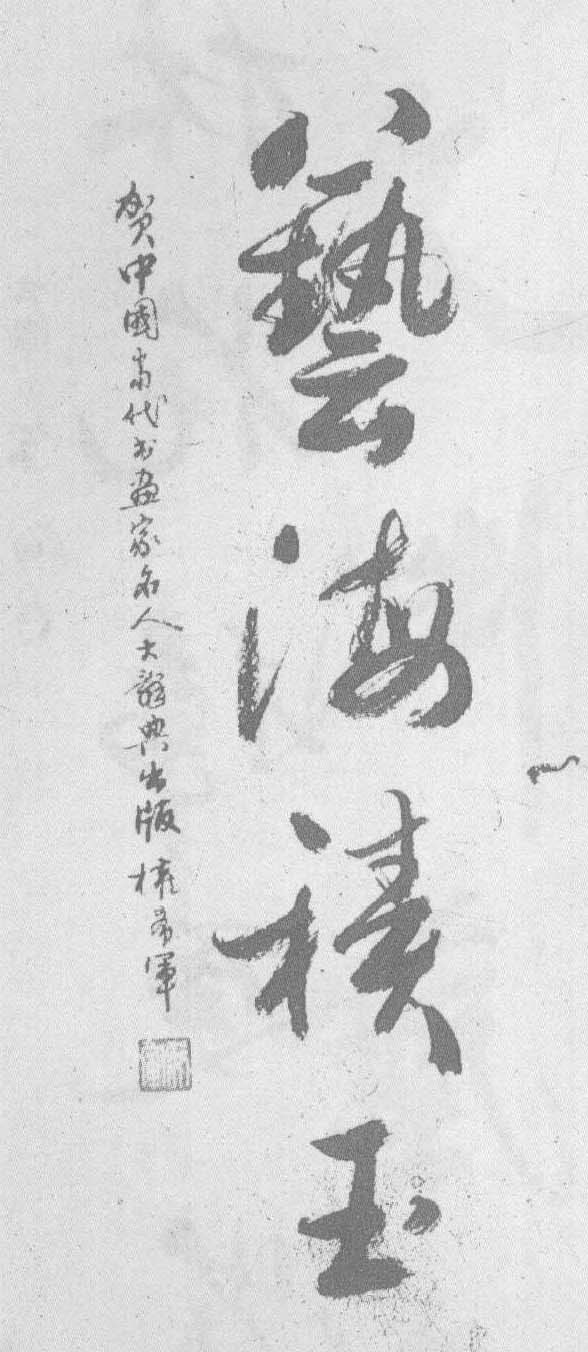 藝海積玉
賀中國當代书畫家名人大辭典出版 希軍